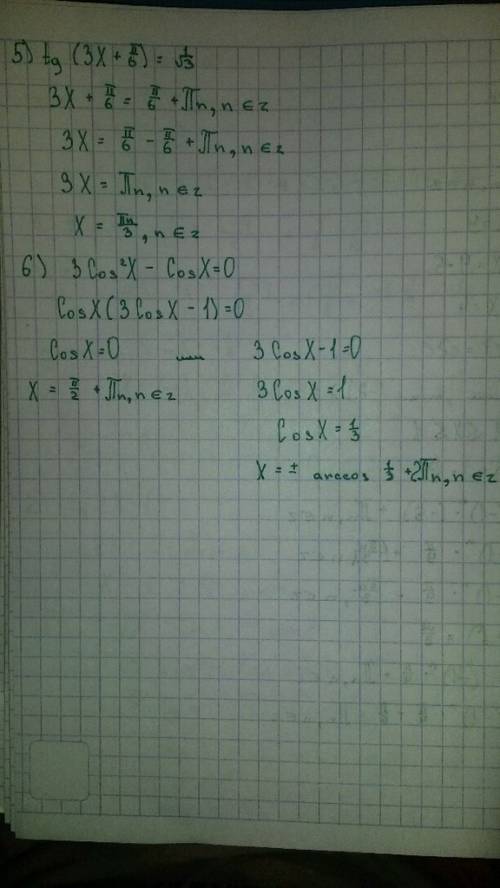 5) tg (3x + π/6) = 1/√3
3x + π/6 = π/6 + πn, n ∈ z
3x = π/6 - π/6 + πn, n ∈ z
3x = πn, n ∈ z
x = πn/3, n ∈ z
6) 3cos²x - cosx=0
cosx(3cosx - 1)=0
cosx=0 или 3cosx-1=0
x = π/2 + πn, n ∈ z 3cosx = 1
cosx = 1/3
x = ± arccos 1/3 + 2πn, n ∈ z